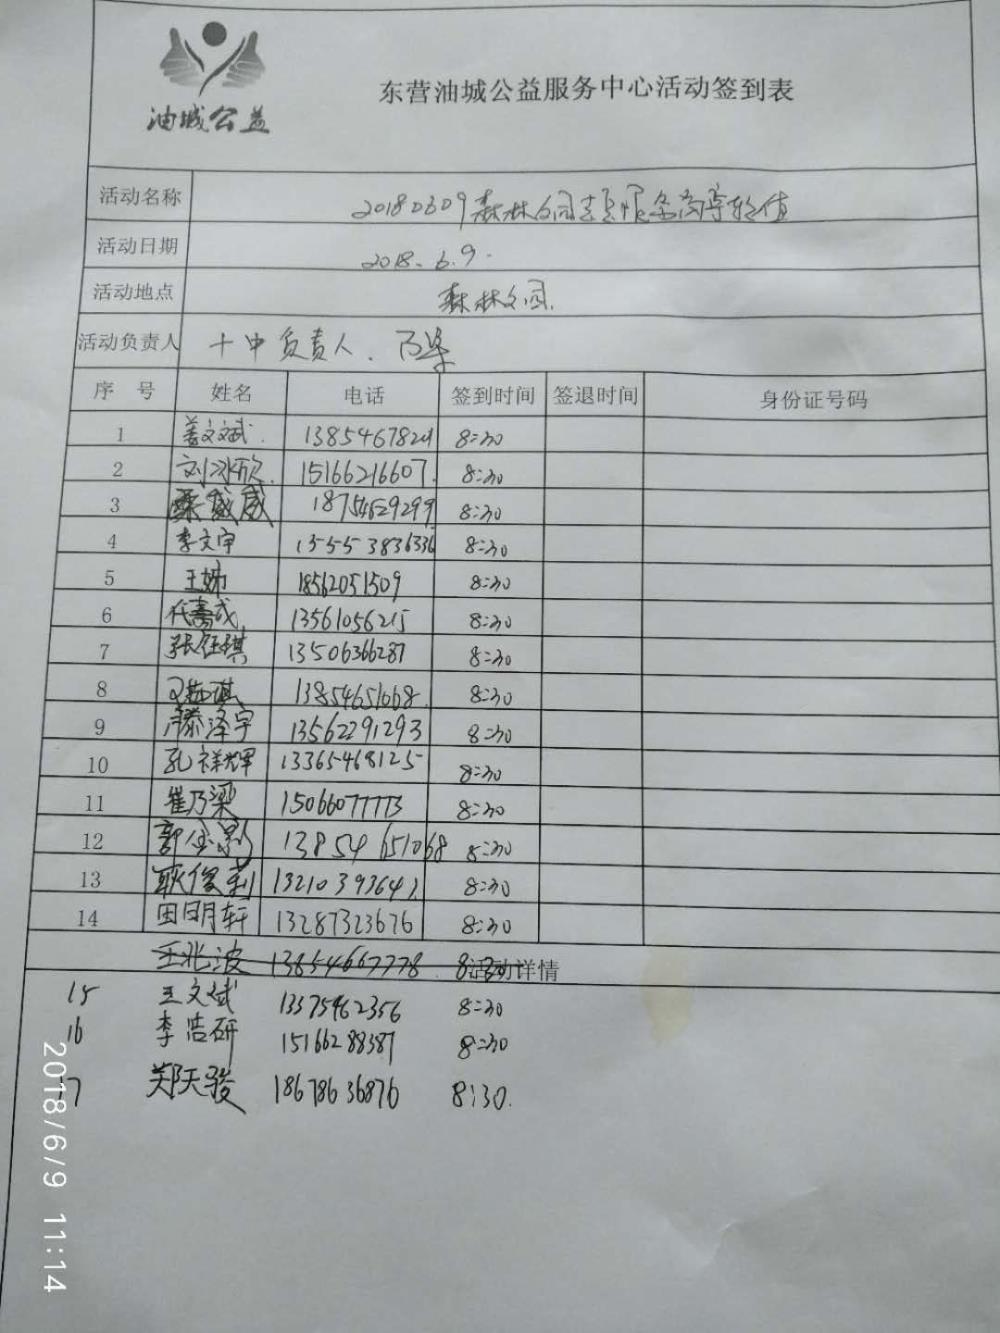 油城公益
东营油城公益服务中心活动签到表
活动名称 20180609森林公园
活动日期 2018.6.9.
活动地点 森林公园.
活动负责人 十中负责人、
序 号 姓名 电话 签到时间 签退时间 身份证号码
1 姜文斌. 8:30
2 刘冰欣. 15166216607. 8:30
3 威威 18754629299 8:30
4 李文宇 13555 3836336 8:30
5 王娣 18562051509 8:30
6 代嘉成 13561056215 8:30
7 张钰琪 13506366287 8:30
8 13854651068. 8:30
9 滕泽宇 13562291293 8:30
10 孔祥辉 13365468125 8:30
11 崔乃梁 15066077773 8:30
12 郭金影 13854 651068 8:30
13 耿俊莉 1321039364 8:30
14 田明轩 13287323676 8:30
王兆波 13854667778. 8:30 活动详情
15 王文斌 13375462356 8:30
16 李浩研 15166288387 8:30
17 郑天骏 18678636876 8:30.
2018/6/9 11:14